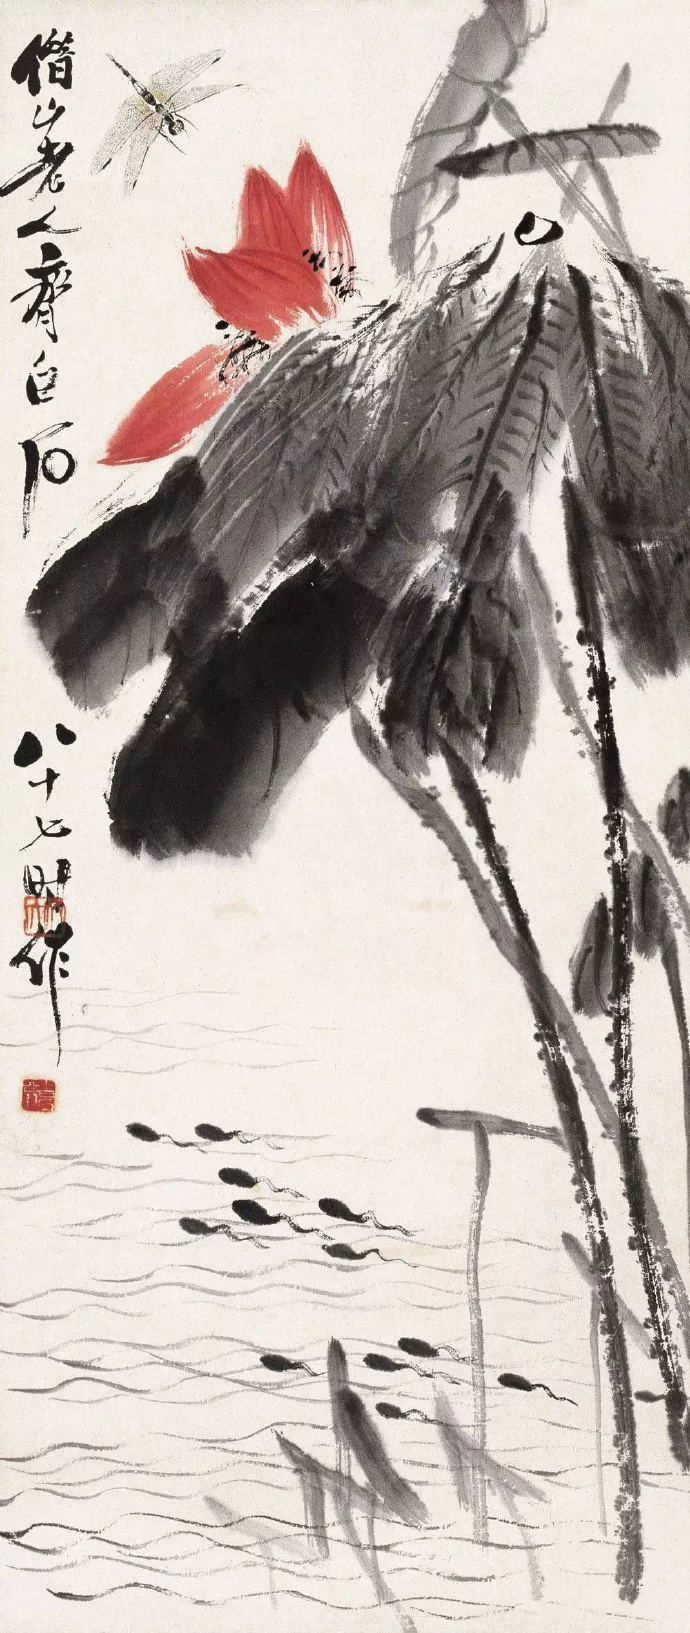 借山老人齊白石八十七時作